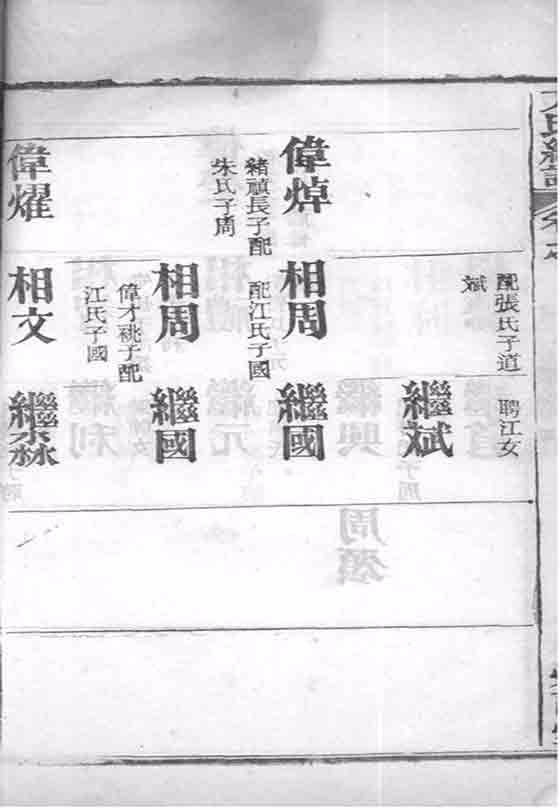 偉焯
緒禎長子配
朱氏子周
偉燿
配張氏子道
斌
相周
配江氏子國
相周
偉才祧子配
江氏子國
相文
聘江女
繼斌
繼國
繼國
繼